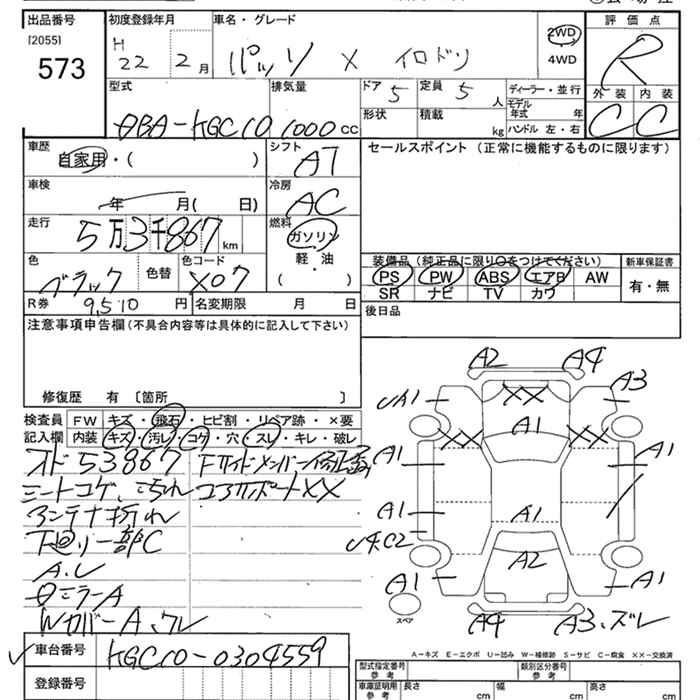 出品番号
[2055]
573
初度登録年月
H 22 2月
車名・グレード
パッソ X イロドリ
2WD
4WD
評価点
R
外装 内装
C C
型式
DBA-KGC10
排気量
1000cc
ドア 5
形状
定員 5人
積載 kg
ディーラー・並行
モデル年式 年
ハンドル 左・右
車歴
自家用・( )
シフト
AT
車検
年 月( 日)
冷房
AC
走行
5万3千867km
燃料
ガソリン
軽・油
( )
色
ブラック
色替
色コード
X07
R券 9,510円
名変期限 月 日
セールスポイント(正常に機能するものに限ります)
装備品(純正品に限り○をつけてください)
PS PW ABS エアB AW
SR ナビ TV カワ
新車保証書
有・無
後日品
注意事項申告欄(不具合内容等は具体的に記入して下さい)
修復歴 有 〔箇所 〕
検査員記入欄
FW キズ・飛石・ヒビ割・リペア跡・×要
内装 キズ・汚レ・コゲ・穴・スレ・キレ・破レ
オド53867
シートコゲ、ヨゴレ
アンテナ折れ
下廻り一部C
A.U
ミラーA
WカバーA、ワレ
コアサポートXX
A2 A4
A3
A1
XX
A1
XX XX
A1 A1
A1
A1
C2
A2
A1 A1
スペア
A4 A3、ズレ
A-キズ E-エクボ U-凹み W-補修跡 S-サビ C-腐食 XX-交換済
車台番号
KGC10-0304559
登録番号
型式指定番号
類別区分番号
車庫証明用参考
長さ cm
幅 cm
高さ cm